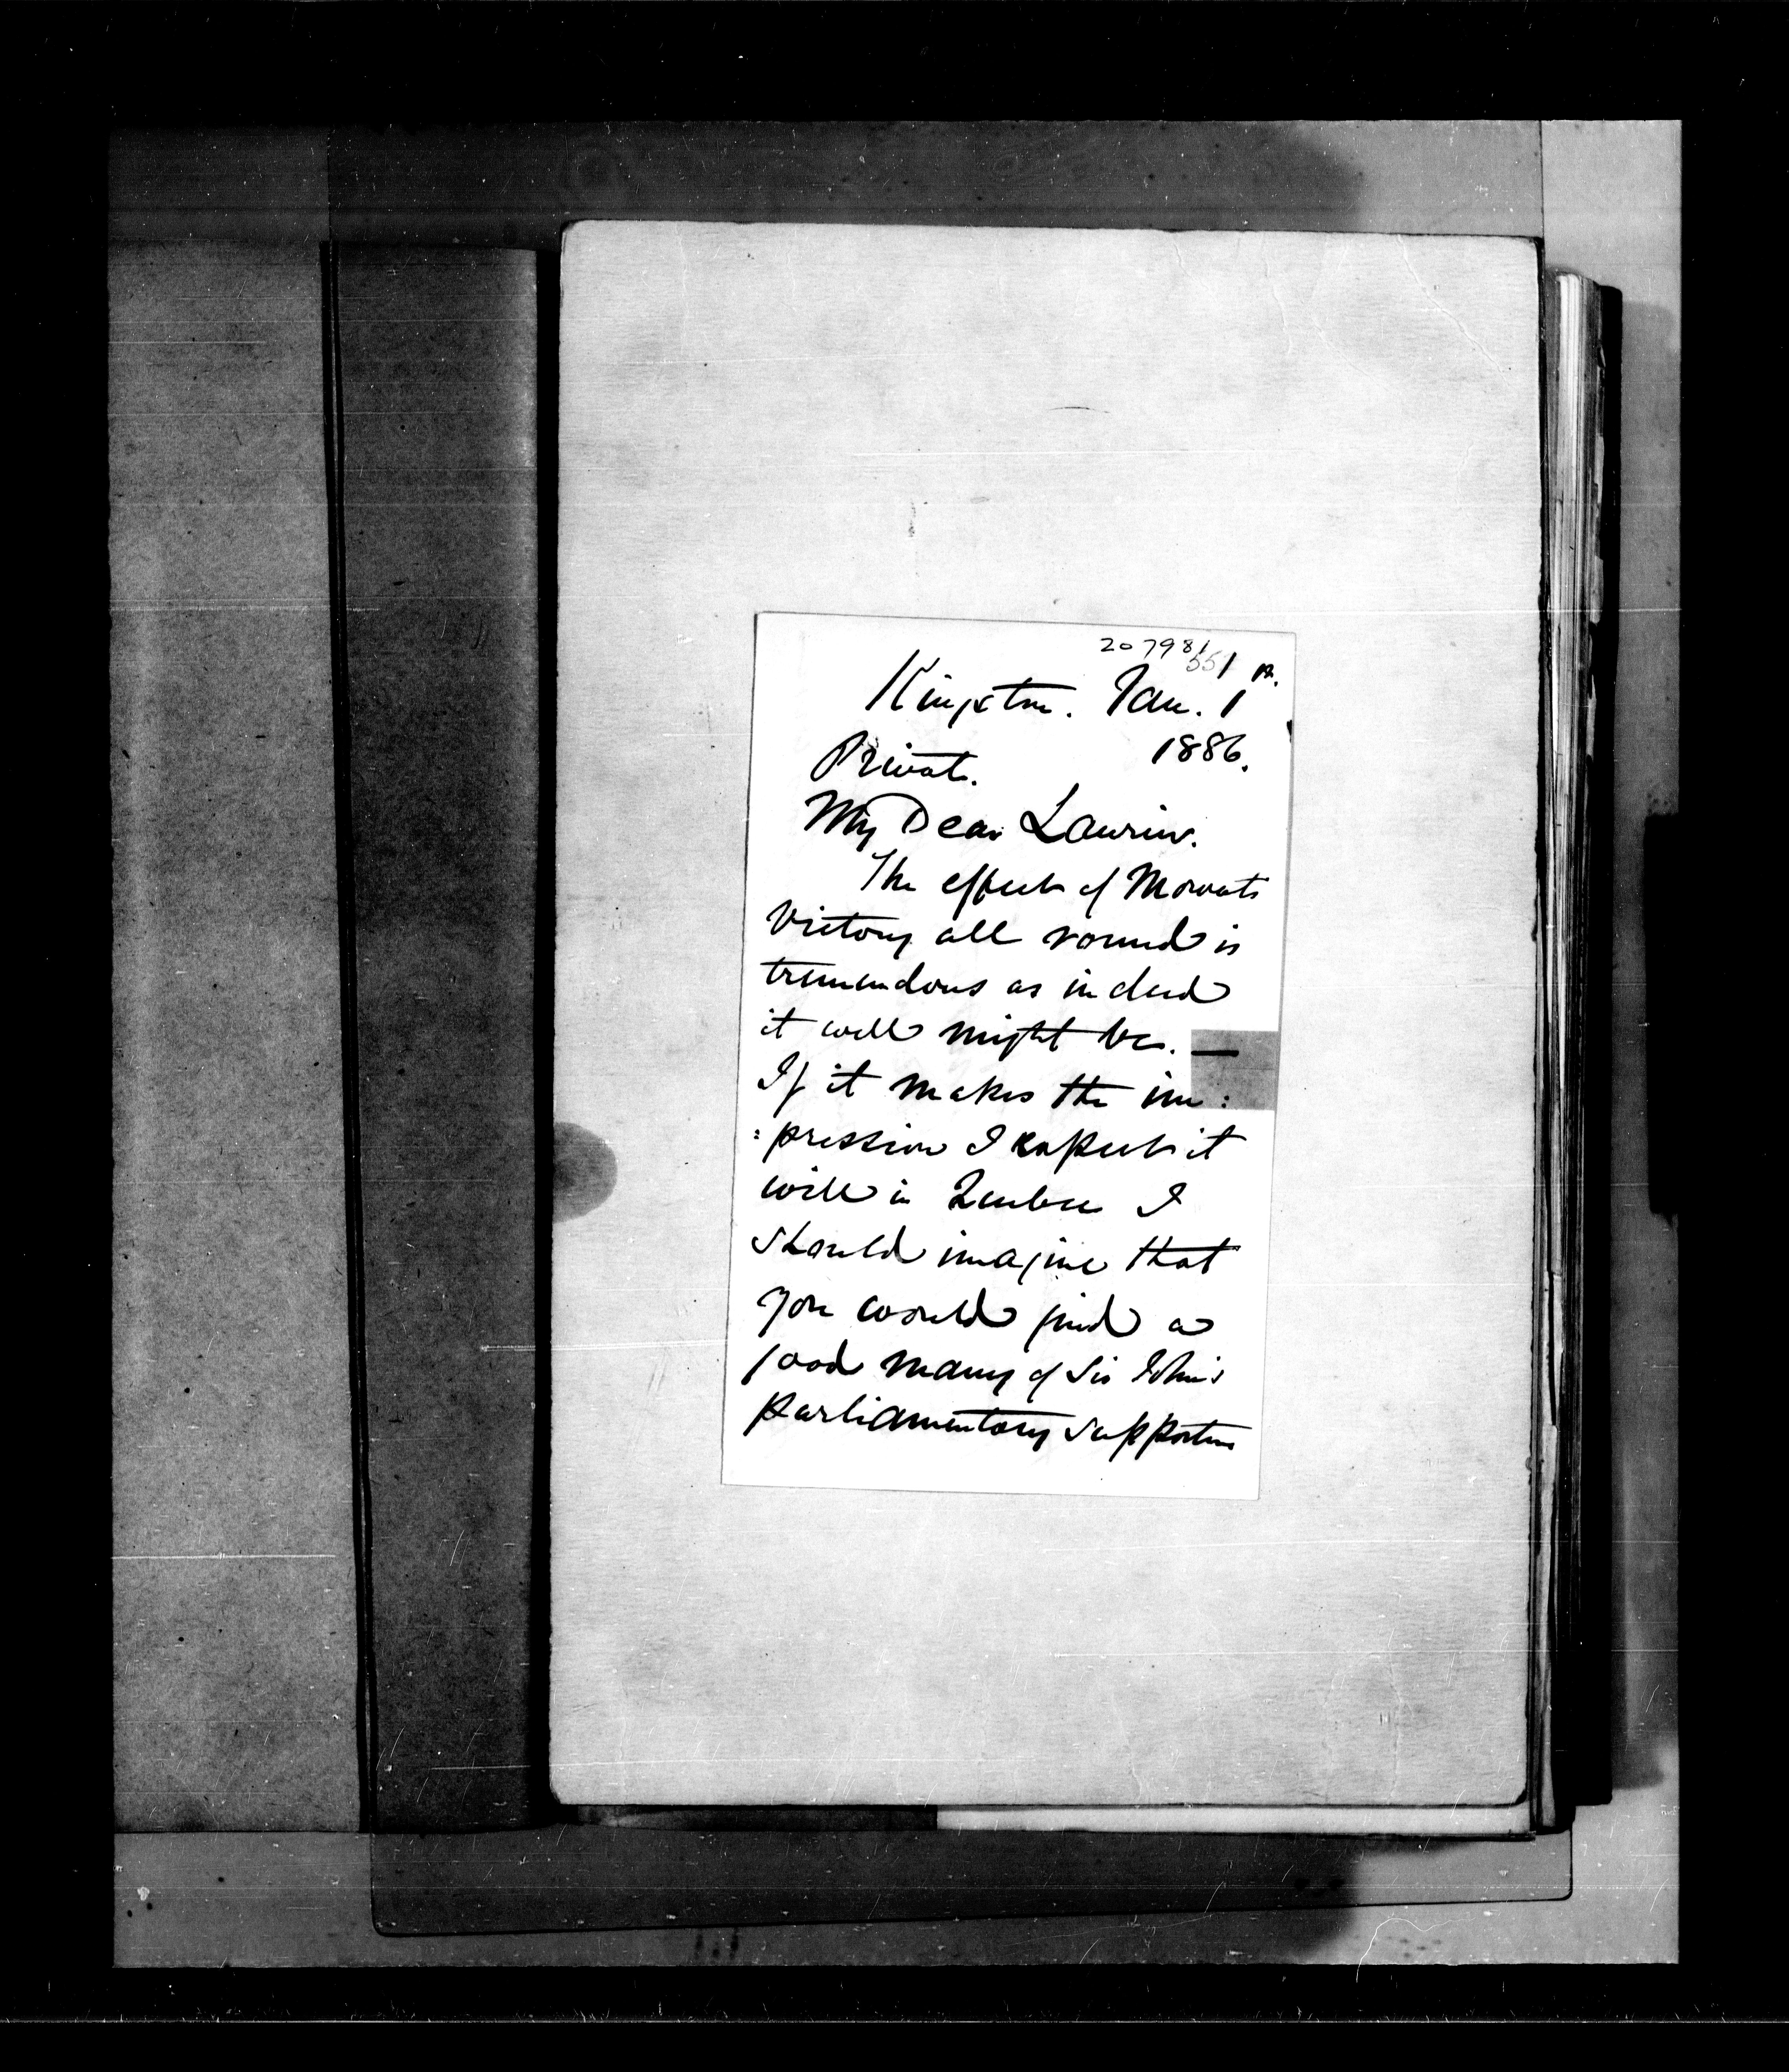 207981
551
Kingston. Jan. 1st
Private. 1886.
My Dear Laurier.
The effect of Mowats
Victory all round is
tremendous as indeed
it well might be. —
If it makes the im:
:pression I expect it
will in Quebec I
should imagine that
you would find a
good many of Sir John's
parliamentary supporters